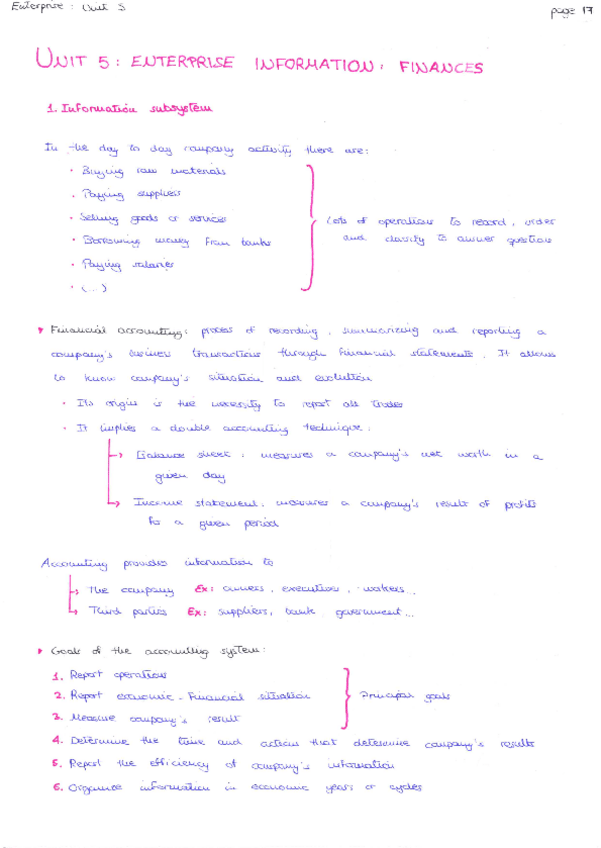 Enterprise: Unit 5
page 17
UNIT 5: ENTERPRISE INFORMATION: FINANCES
1. Information subsystem
In the day to day company activity there are:
· Buying raw materials
· Paying suppliers
· Selling goods or services
· Borrowing money from banks
· Paying salaries
· (...)
Lots of operations to record, order
and clasify to answer questions
Financial accounting: process of recording, summarizing and reporting a
company's business transactions through financial statements. It allows
to know company's situation and evolution
· Its origin is the necessity to report all trades
· It implies a double accounting technique:
Balance sheet: measures a company's net worth in a
given day
Income statement: measures a company's result of profits
for a given period
Accounting provides information to
The company Ex: owners, executives, workers...
Third parties Ex: suppliers, bank, government...
Goals of the accounting system:
1. Report operations
2. Report economic-financial situation
3. Measure company's result
Principal goals
4. Determine the time and actions that determine company's results
5. Report the efficiency of company's information
6. Organise information in economic years or cycles